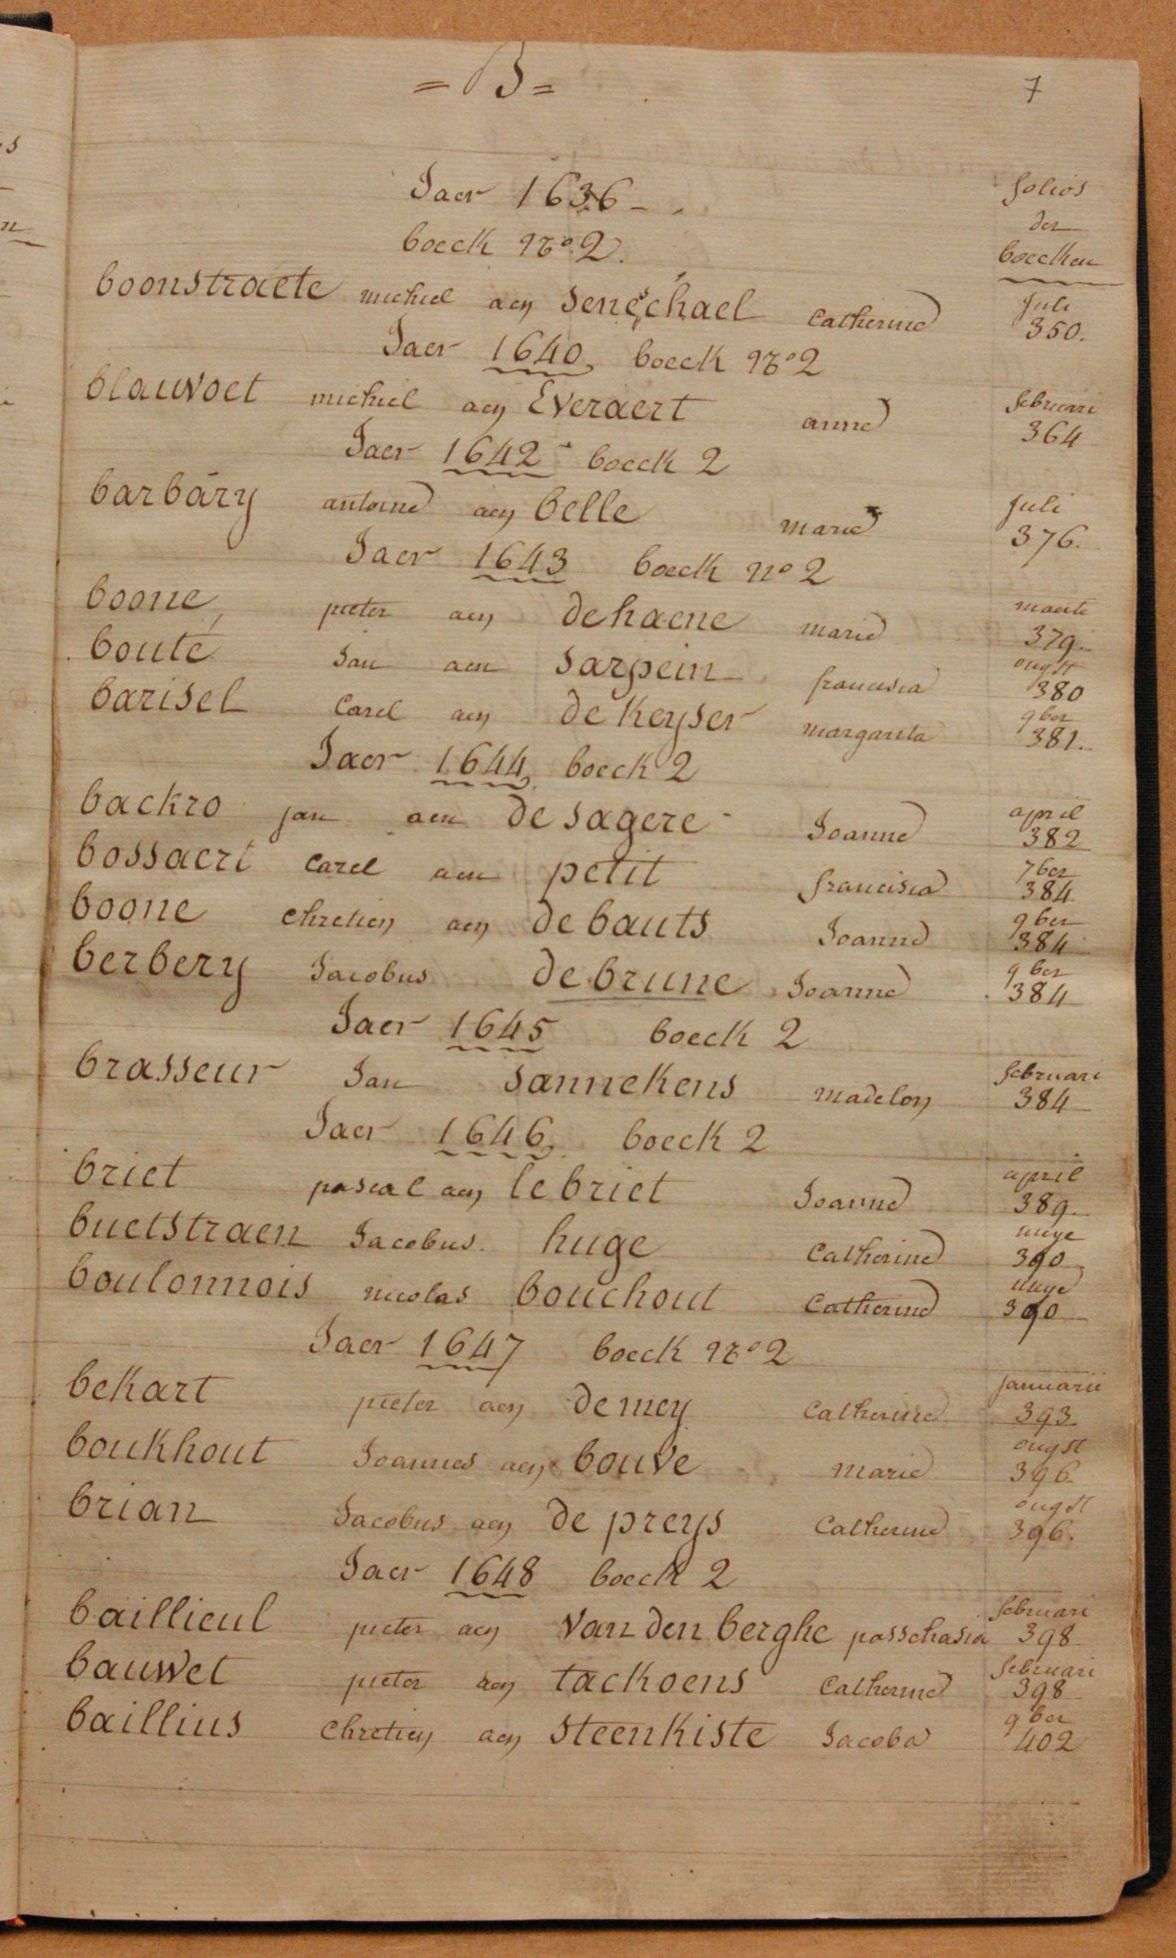 = B =
7
Jaer 1636
folios
der
boecken
boeck No 2.
boonstraete michiel aen seneschael Catherine Juli 350.
Jaer 1640, boeck No 2
blauvoet michiel aen Everaert anne februari 364
Jaer 1642 boeck 2
barbary antoine aen belle marie Juli 376.
Jaer 1643 boeck no 2
boone, pieter aen dehaene marie maerte 379.
bouté Jan aen sarpein francisca ougst 380
barisel Carel aen de Keyser margarita 9ber 381.
Jaer 1644, boeck 2
backro jan aen de sagere Joanne april 382
bossaert Carel aen petit francisca 7ber 384
boone chretien aen de bauts Joanne 9ber 384
berbery Jacobus de brune Joanne 9ber 384
Jaer 1645 boeck 2
brasseur Jan sannekens madelon februari 384
Jaer 1646, boeck 2
briet pascal aen lebriet Joanne april 389.
buetstraen Jacobus. huge Catherine meye 390
boulonnois nicolas bouchout Catherine meye 390
Jaer 1647 boeck No 2
beKart pieter aen demey Catherine Januarii 393
boukhout Joannes aen bouve marie ougst 396.
brian Jacobus aen de preys Catherine ougst 396.
Jaer 1648 boeck 2
baillieul pieter aen van den berghe passchasia februari 398
bauwet pieter aen tackoens Catherine februari 398
baillius chretien aen steenkiste Jacoba 9ber 402